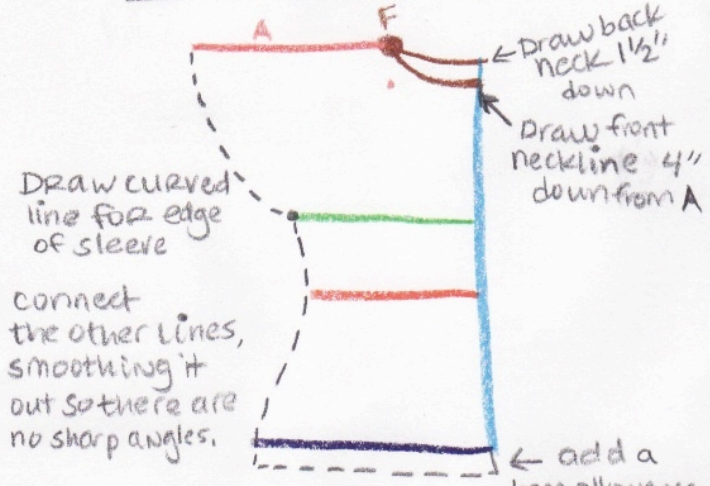 F
A
← Draw back
neck 1½"
down
Draw front
neckline 4"
down from A
Draw curved
line for edge
of sleeve
connect
the other lines,
smoothing it
out so there are
no sharp angles.
← add a